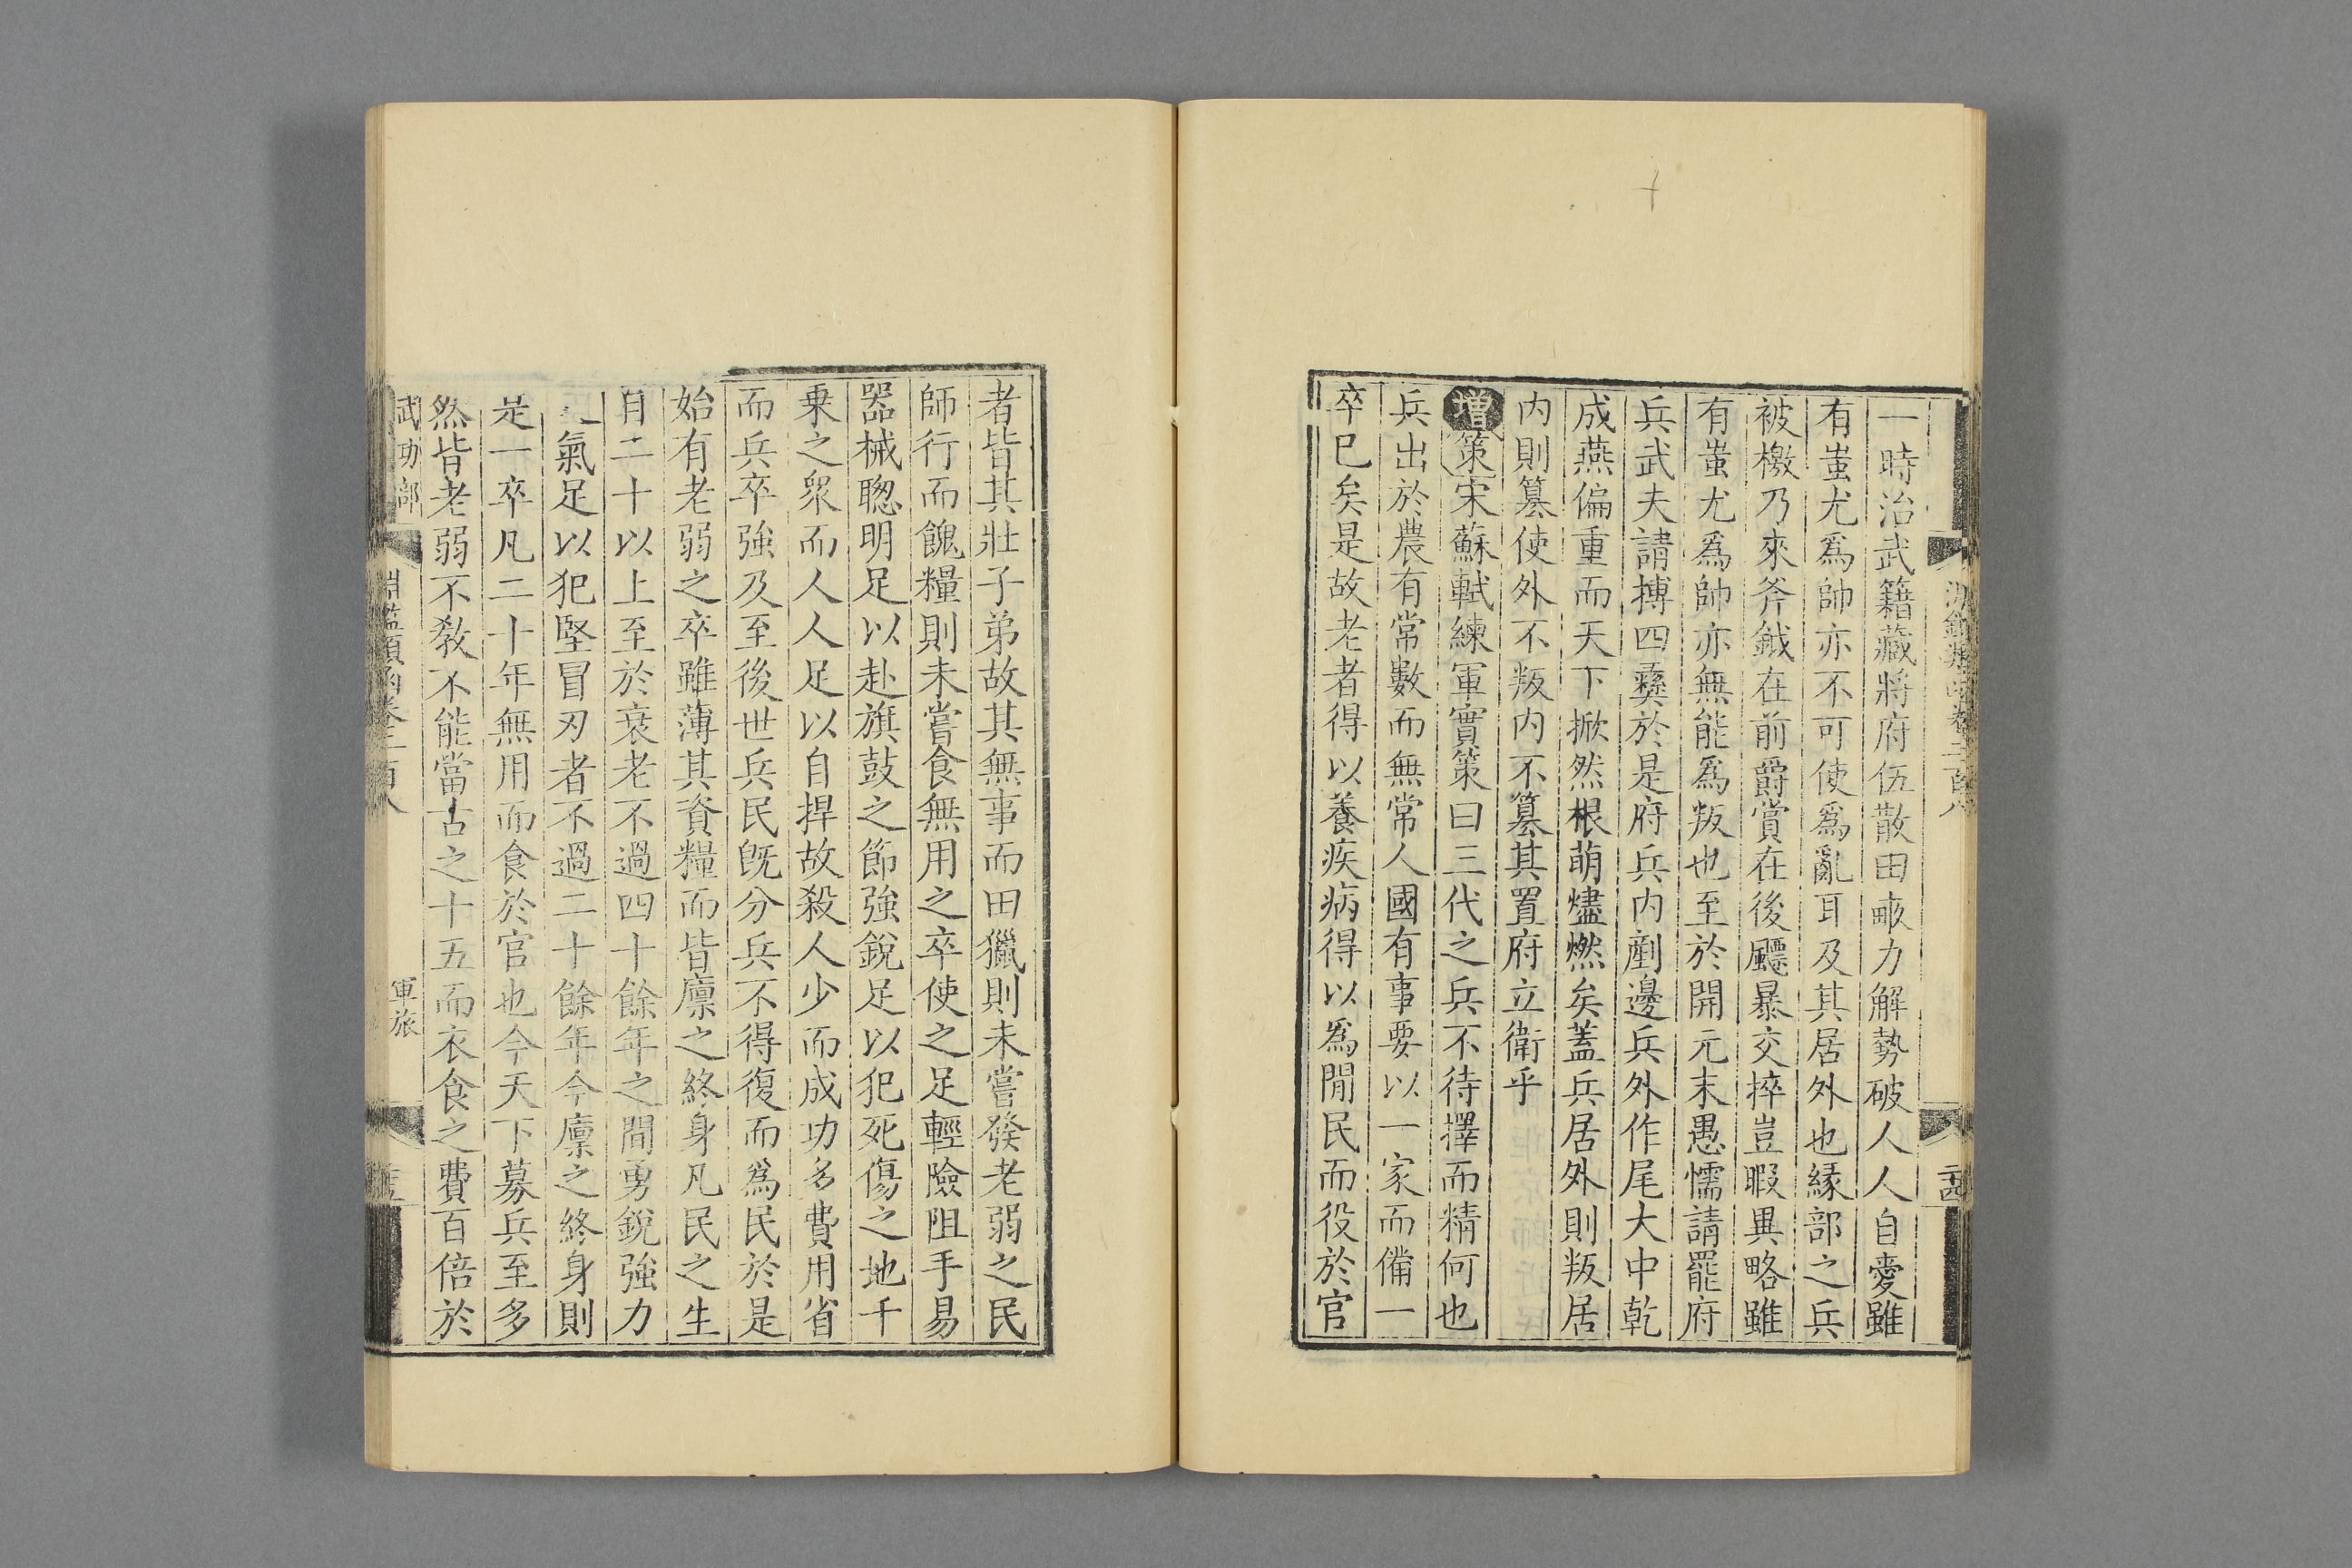 一時治武籍藏將府伍散田畞力解勢破人人自愛雖
有蚩尤爲帥亦不可使爲亂耳及其居外也緣部之兵
被檄乃來斧鉞在前爵賞在後飇暴交捽豈暇異略雖
有蚩尤爲帥亦無能爲叛也至於開元末愚懦請罷府
兵武夫請搏四彛於是府兵内剷邊兵外作尾大中乾
成燕偏重而天下掀然根萌燼燃矣蓋兵居外則叛居
内則簒使外不叛内不簒其置府立衛乎
增策宋蘇軾練軍實策曰三代之兵不待擇而精何也
兵出於農有常數而無常人國有事要以一家而備一
卒巳矣是故老者得以養疾病得以爲閒民而役於官
淵鑑類函卷二百八
二十四
者皆其壯子弟故其無事而田獵則未嘗發老弱之民
師行而餽糧則未嘗食無用之卒使之足輕險阻手易
器械聰明足以赴旗鼓之節強銳足以犯死傷之地千
乗之衆而人人足以自捍故殺人少而成功多費用省
而兵卒強及至後世兵民旣分兵不得復而爲民於是
始有老弱之卒雖薄其資糧而皆廪之終身凡民之生
自二十以上至於衰老不過四十餘年之間勇銳強力
氣足以犯堅冒刃者不過二十餘年今廪之終身則
是一卒凡二十年無用而食於官也今天下募兵至多
然皆老弱不敎不能當古之十五而衣食之費百倍於
武功部
淵鑑類函卷二百八
軍旅